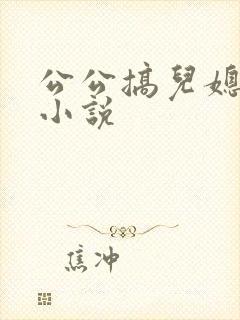 公公搞兒媳
小說
焦冲